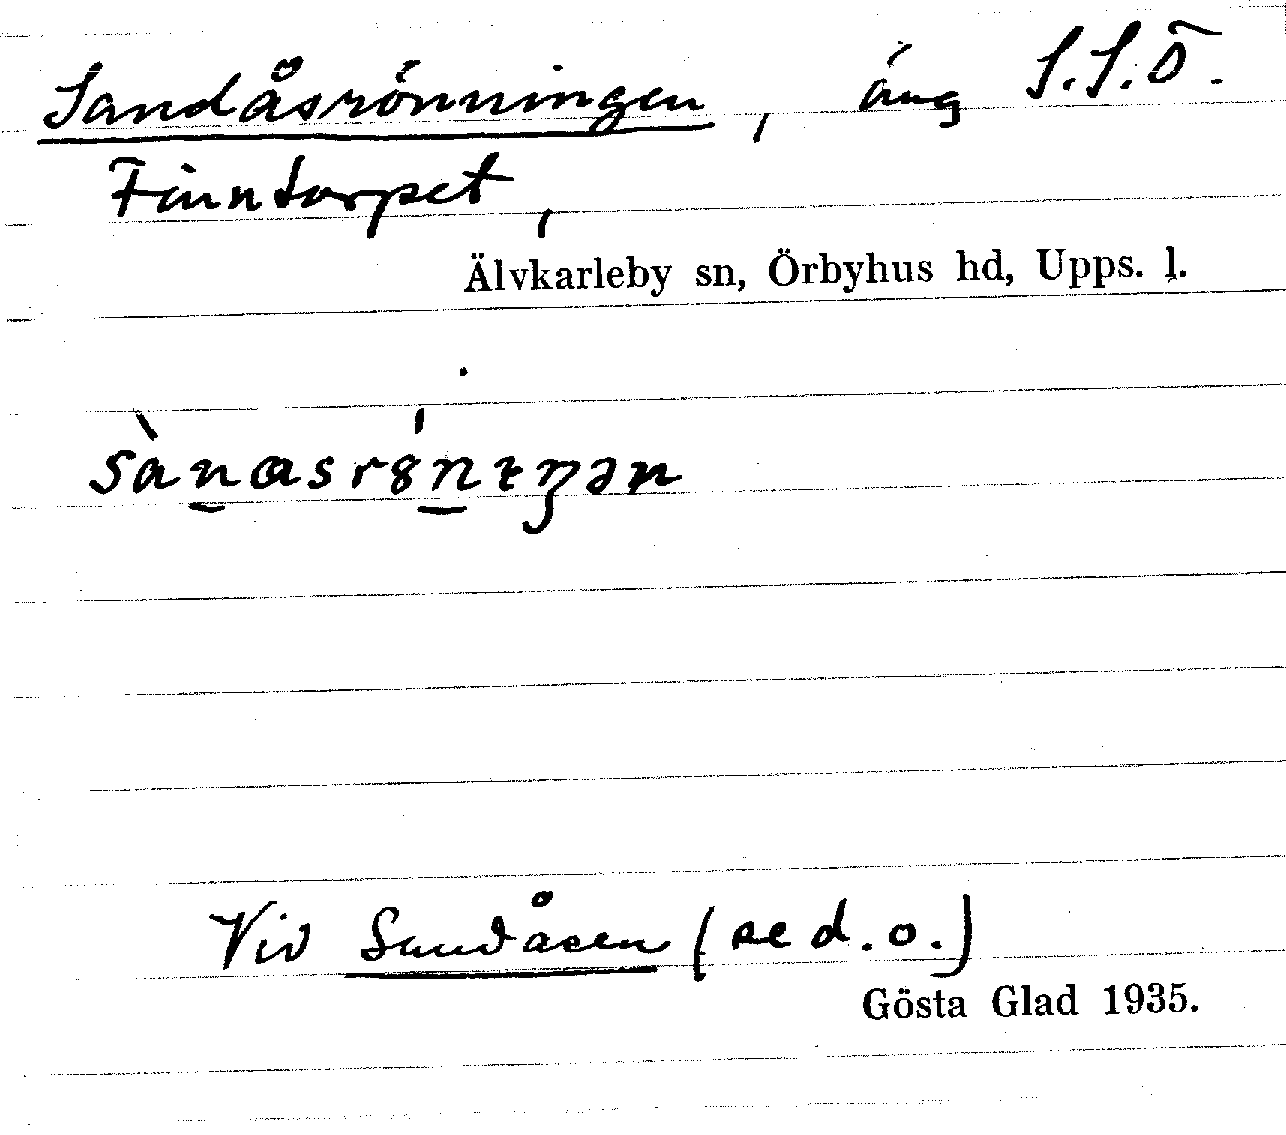 Sandåsrönningen, äng S.S.Ö.
Finntorpet,
Älvkarleby sn, Örbyhus hd, Upps. l.
Vid Sandåsen (se d.o.)
Gösta Glad 1935.